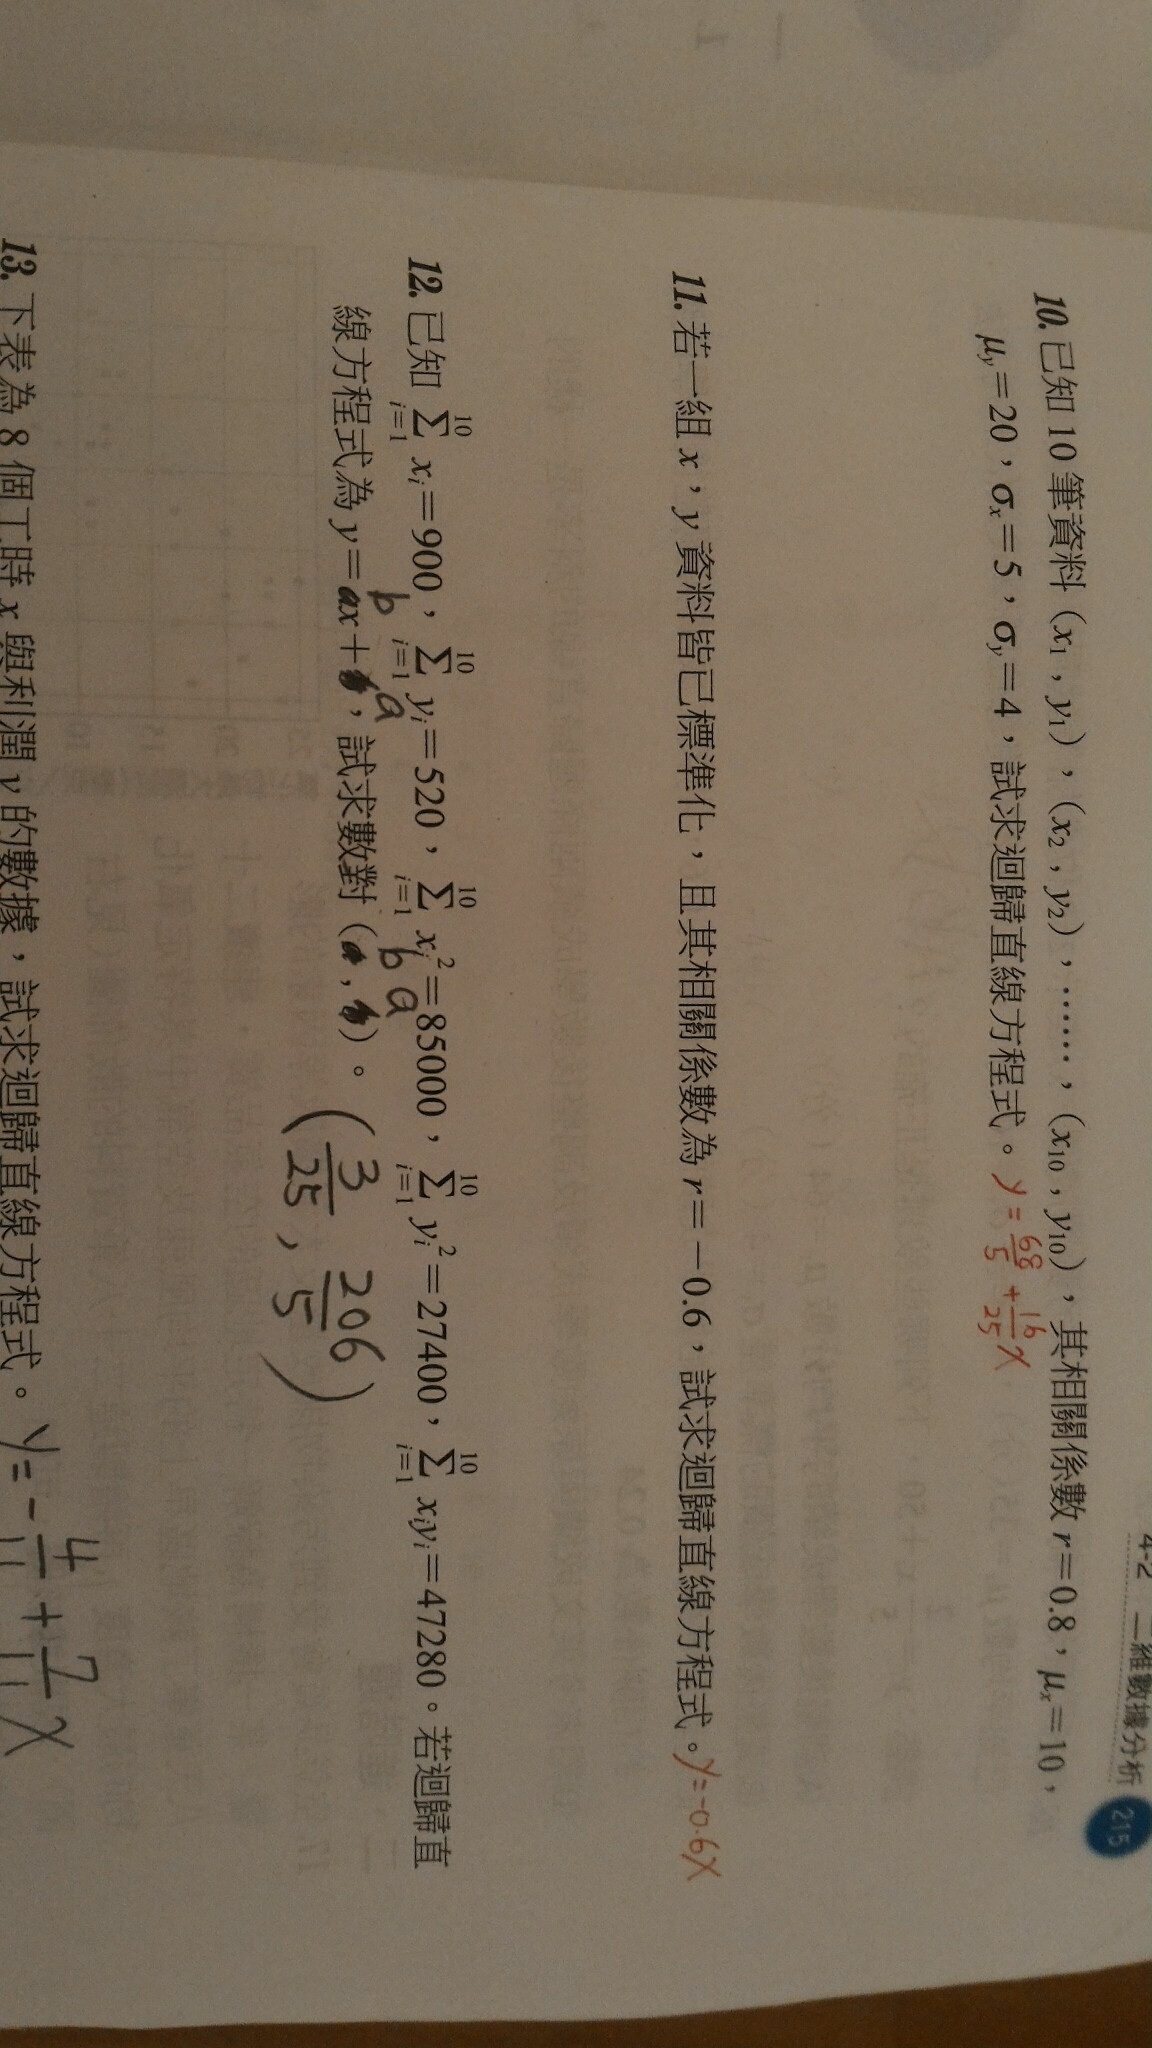 4-2 二維數據分析 215
10. 已知 10 筆資料 (x₁, y₁),(x₂, y₂),……,(x₁₀, y₁₀),其相關係數 r=0.8,μₓ=10,
μᵧ=20,σₓ=5,σᵧ=4,試求迴歸直線方程式。 y = 68/5 + 16/25 x
11. 若一組 x,y 資料皆已標準化,且其相關係數為 r=-0.6,試求迴歸直線方程式。 y=-0.6x
12. 已知 ∑_{i=1}^{10} xᵢ=900,∑_{i=1}^{10} yᵢ=520,∑_{i=1}^{10} xᵢ²=85000,∑_{i=1}^{10} yᵢ²=27400,∑_{i=1}^{10} xᵢyᵢ=47280。若迴歸直
b a b a
線方程式為 y=ax+b,試求數對 (a, b)。 (3/25, 206/5)
13. 下表為 8 個工時 x 與利潤 y 的數據,試求迴歸直線方程式。 y = -4/11 + 7/11 x